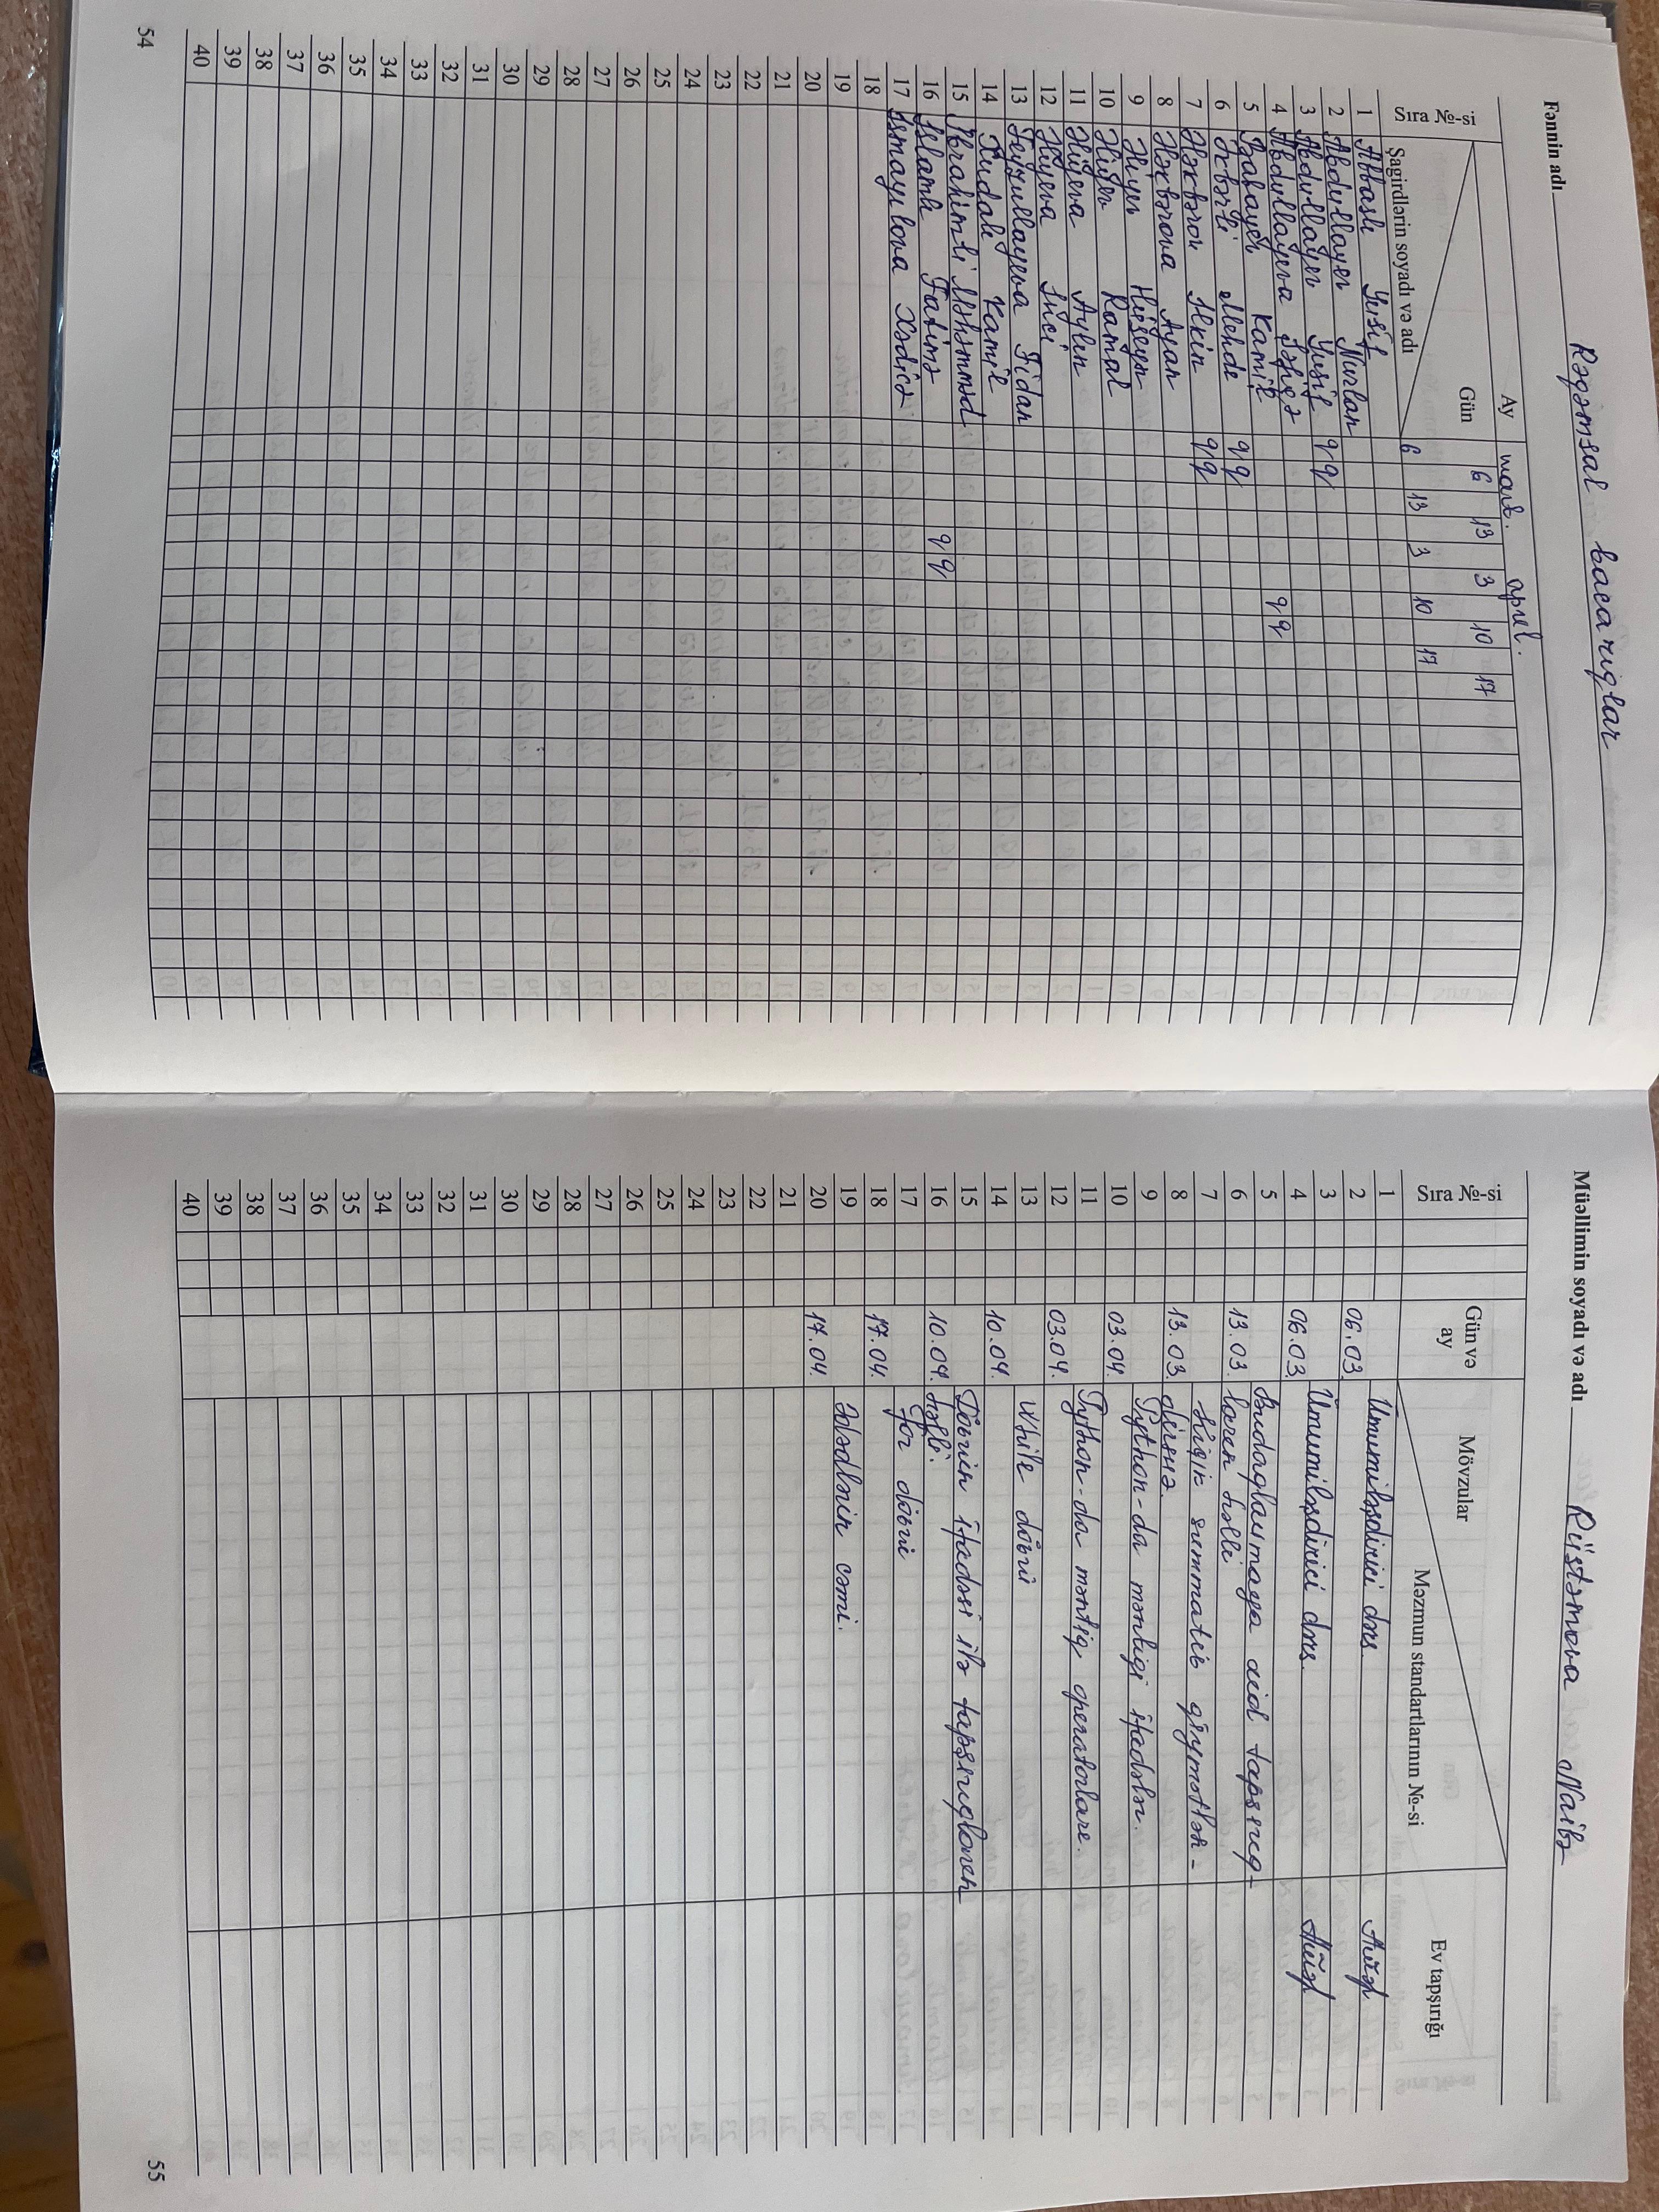 Fənnin adı Rəqəmsal bacarıqlar
Ay mart. aprel.
Gün 6 13 3 10 17
Sıra №-si
Şagirdlərin soyadı və adı 6 13 3 10 17
1 Abbaslı Yusif
2 Abdullayev Nurlan
3 Abdullayev Yusif q q
4 Abdullayeva Şəfiqə q q
5 Babayev Kamil
6 Əkbərli Mehdi q q
7 Ələkbərov İlkin q q
8 Ələkbərova Ayan
9 Əliyev Hüseyn
10 Əliyev Ramal
11 Əliyeva Aylin
12 Əliyeva İnci
13 Feyzullayeva Fidan
14 Xudalı Kamil
15 İbrahimli Məhəmməd
16 İslamlı Fatimə q q
17 İsmayılova Xədicə
18
19
20
21
22
23
24
25
26
27
28
29
30
31
32
33
34
35
36
37
38
39
40
54
Müəllimin soyadı və adı Rüstəmova Naibə
Sıra №-si
Gün və ay
Mövzular
Məzmun standartlarının №-si
Ev tapşırığı
1 Ümumiləşdirici dərs.
2 06.03.
3 Ümumiləşdirici dərs.
4 06.03.
5 Budaqlanmaya aid tapşırıq-
6 13.03. ların həlli
7 Kiçik summativ qiymətlən-
8 13.03. dirmə.
9 Python-da məntiqi ifadələr.
10 03.04.
11 Python-da məntiq operatorları.
12 03.04.
13 While dövrü
14 10.04.
15 Dövrün ifadəsi ilə tapşırıqların
16 10.04. həlli.
17 For dövrü
18 17.04.
19 Ədədlərin cəmi.
20 17.04.
21
22
23
24
25
26
27
28
29
30
31
32
33
34
35
36
37
38
39
40
55